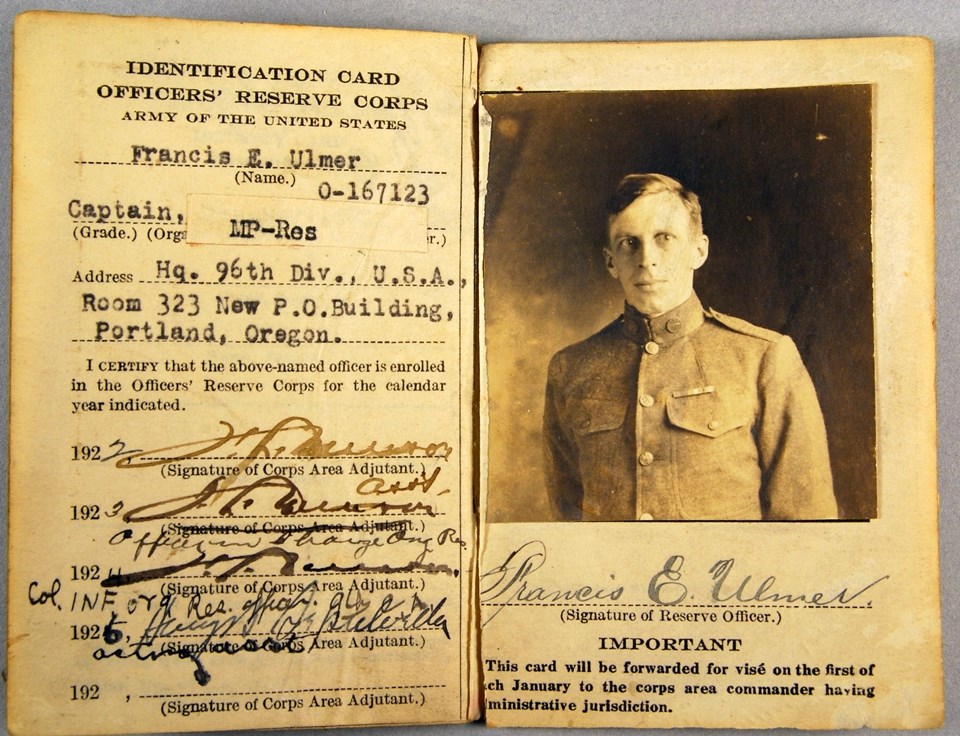 IDENTIFICATION CARD
OFFICERS' RESERVE CORPS
ARMY OF THE UNITED STATES
Francis E. Ulmer
(Name.)
O-167123
Captain, MP-Res
(Grade.) (Orga r.)
Address Hq. 96th Div., U.S.A.,
Room 323 New P.O.Building,
Portland, Oregon.
I CERTIFY that the above-named officer is enrolled
in the Officers' Reserve Corps for the calendar
year indicated.
1922,
(Signature of Corps Area Adjutant.)
asst.
1923,
(Signature of Corps Area Adjutant.)
Officer in Charge Org Res.
1924
(Signature of Corps Area Adjutant.)
Col. INF. Org Res.
1925,
(Signature of Corps Area Adjutant.)
192 ,
(Signature of Corps Area Adjutant.)
Francis E. Ulmer.
(Signature of Reserve Officer.)
IMPORTANT
This card will be forwarded for visé on the first of
ch January to the corps area commander having
ministrative jurisdiction.